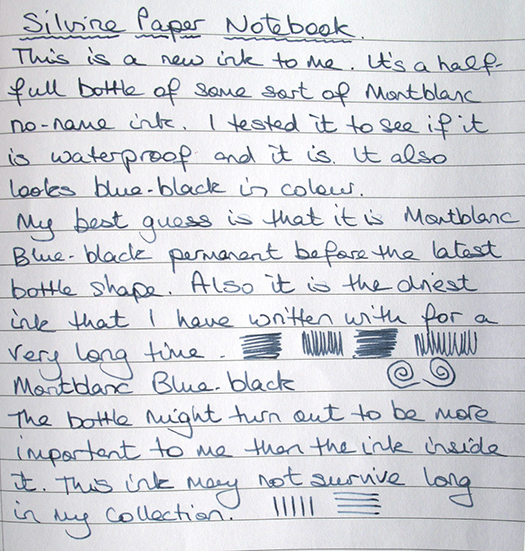 Silvine Paper Notebook.
This is a new ink to me. It's a half-
full bottle of some sort of Montblanc
no-name ink. I tested it to see if it
is waterproof and it is. It also
looks blue-black in colour.
My best guess is that it is Montblanc
Blue-black permanent before the latest
bottle shape. Also it is the driest
ink that I have written with for a
very long time.
Montblanc Blue-black
The bottle might turn out to be more
important to me than the ink inside
it. This ink may not survive long
in my collection.